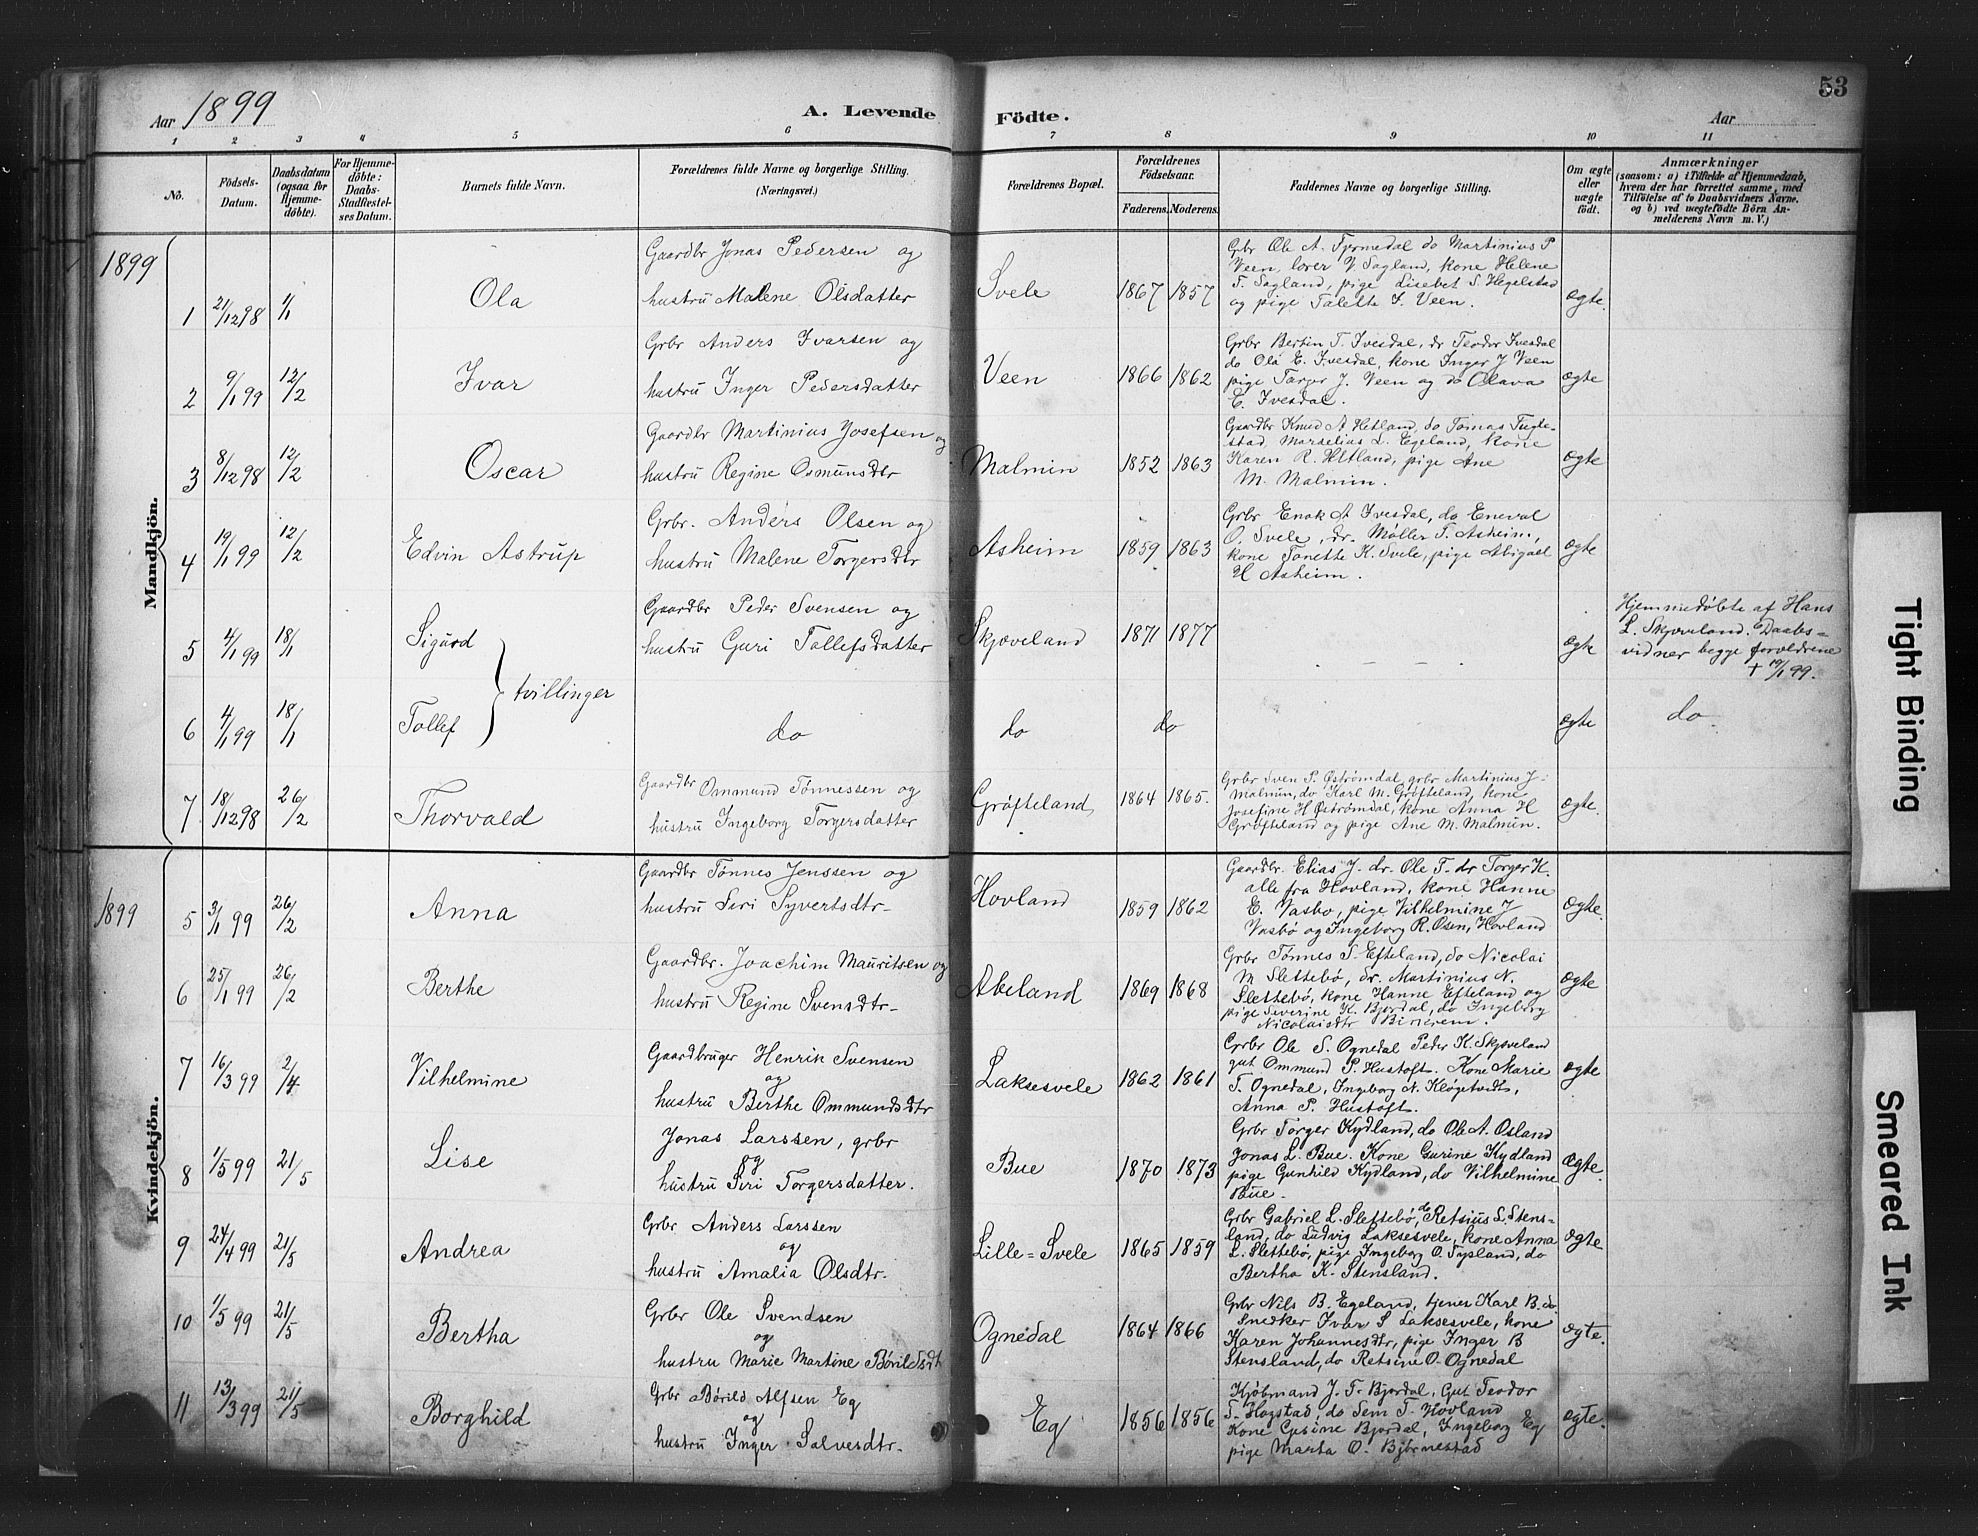 Aar 1899
A. Levende Födte.
Aar
53
1 2 3 4 5 6 7 8 9 10 11
No.
Födsels-
Datum.
Daabsdatum
(ogsaa for
Hjemme-
döbte).
For Hjemme-
döbte:
Daabs-
Stadfæstel-
ses Datum.
Barnets fulde Navn.
Forældrenes fulde Navne og borgerlige Stilling.
(Næringsvei.)
Forældrenes Bopæl.
Forældrenes
Födselsaar.
Faderens. Moderens.
Faddernes Navne og borgerlige Stilling.
Om ægte
eller
uægte
födt.
Anmærkninger
(saasom: a) i Tilfælde af Hjemmedaab,
hvem der har forrettet samme, med
Tilföielse af to Daabsvidners Navne.
og b) ved uægtefödte Börn An-
melderens Navn m. V.)
Mandkjön.
1899
1 2/12 98 1/1 Ola
Gaardbr Jonas Pedersen og
hustru Malene Olsdatter
Svele 1867 1857
Gbr Ole A. do Martinius P
Veen, lærer V Sagland, kone Helene
T. Sagland, pige Lisebet S. Hegelstad
og pige Talette J. Veen.
ægte.
2 9/1 99 12/2 Ivar
Grbr Anders Ivarsen og
hustru Inger Pedersdatter
Veen 1866 1862
Grbr Bertin T. Ivesdal, dr Teodor Ivesdal
do Ola E. Ivesdal, kone Inger J Veen
pige Torger J. Veen og do Olava
E. Ivesdal.
ægte
3 8/12 98 12/2 Oscar
Gaardbr Martinius Josefsen og
hustru Regine Osmunsdtr
Malmin 1852 1863
Gaardbr Knud A Hetland, do Tomas Tugte-
stad, Marselius L. Egeland, kone
Karen R. Hetland, pige Ane
M. Malmin.
ægte
4 19/1 99 12/2 Edvin Astrup
Grbr. Anders Olsen og
hustru Malene Torgersdtr
Asheim 1859 1863
Grbr Enok A Ivesdal, do Eneval
O. Svele, dr. Møller T. Asheim,
kone Tonette K. Svele, pige Abigael
H Asheim.
ægte
5 4/1 99 18/1 Sigurd
Gaardbr Peder Svensen og
hustru Guri Tollefsdatter
Skjæveland 1871 1877
- - -
ægte
Hjemmedøbte af Hans
L. Skjæveland. Daabs=
vidner begge forældrene
+ 19/1 99.
tvillinger
6 4/1 99 18/1 Tollef
do do do ægte do
7 18/12 98 26/2 Thorvald
Gaardbr Ommund Tønnessen og
hustru Ingeborg Torgersdatter
Grøfteland 1864 1865.
Grbr Sven P. Østrømdal, grbr Martinius J
Malmin, do Karl M. Grøfteland, kone
Josefine H Østrømdal, kone Anna H
Grøfteland og pige Ane M. Malmin.
ægte.
Kvindekjön.
1899
5 3/1 99 26/2 Anna
Gaardbr Tønnes Jenssen og
hustru Siri Syvertsdtr-
Hovland 1859 1862
Gaardbr. Elias J. dr. Ole T. dr Torger K.
alle fra Hovland, kone Hanne
E. Vasbo, pige Vilhelmine J
Vasbö og Ingeborg R. Osen, Hovland
ægte.
6 25/1 99 26/2 Berthe
Gaardbr. Joachim Mauritsen og
hustru Regine Svensdtr-
Abeland 1869 1868
Grbr Tønnes S. Efteland, do Nicolai
M Slettebö, dr. Martinius N.
Slettebö, kone Hanne Efteland og
pige Severine K. Bjordal, do Ingeborg
Nicolaisdtr
ægte
7 16/3 99 2/4 Vilhelmine
Gaardbruger Henrik Svensen
og
hustru Berthe Ommundsdtr
Laksesvele 1862 1861
Grbr Ole S. Ognedal Peder K. Skjæveland
gut Ommund P. Hustoft. Kone Marie
T. Ognedal, Ingeborg N. Kløgetvedt,
Anna P. Hustoft.
ægte
8 1/5 99 21/5 Lise
Jonas Larssen, grbr
og
hustru Siri Torgersdatter.
Bue 1870 1873
Grbr Torger Kydland, do Ole A. Osland
Jonas L. Bue. Kone Gurine Kydland
pige Gunhild Kydland, do Vilhelmine
Bue.
Ægte.
9 24/4 99 21/5 Andrea
Grbr Anders Larssen
og
hustru Amalia Olsdtr.
Lille=Svele 1865 1859
Grbr Gabriel L. Slettebö, Retsius L. Stens=
land, do Ludvig Laksesvele, kone Anna
L. Slettebö, pige Ingeborg O. Sysland, do
Bertha K. Stensland.
ægte
10 1/5 99 21/5 Bertha
Grbr Ole Svendsen
og
hustru Marie Martine Børildsdt
Ognedal 1864 1866
Grbr Nils B. Egeland, tjener Karl B. do.
Snedker Ivar S Laksesvele, kone
Karen Johannesdtr, pige Inger B
Stensland, do Retsine O. Ognedal
ægte.
11 13/3 99 21/5 Borghild
Grbr Børild Alfsen Eg
og
hustru Inger Salvesdtr.
Eg 1856 1856
Kjøbmand J. T. Bjordal, Gut Teodor
T. Hogstad, do Sem T. Hovland
Kone Gusine Bjordal, Ingeborg Eg
pige Marta O. Bjørnestad
ægte.
Tight Binding
Smeared Ink